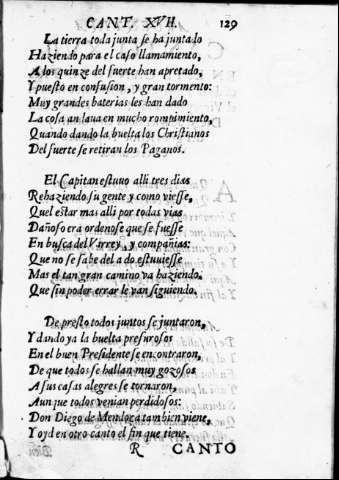 CANT. XVII. 129
La tierra toda junta se ha juntado
Haziendo para el caso llamamiento,
A los quinze del fuerte han apretado,
Y puesto en confusion, y gran tormento:
Muy grandes baterias les han dado
La cosa andaua en mucho rompimiento,
Quando dando la buelta los Christianos
Del fuerte se retiran los Paganos.
El Capitan estuuo alli tres dias
Rehaziendo su gente y como viesse,
Quel estar mas alli por todas vias
Dañoso era ordenose que se fuesse
En busca del Virrey, y compañias:
Que no se sabe del a do estuuiesse
Mas el tan gran camino va haziendo,
Que sin poder errar le van siguiendo.
De presto todos juntos se juntaron,
Y dando ya la buelta presurosos
En el buen Presidente se encontraron,
De que todos se hallan muy gozosos
A sus casas alegres se tornaron,
Aunque todos venian perdidosos:
Don Diego de Mendoça tambien viene,
Y oyd en otro canto el fin que tiene.
R CANTO